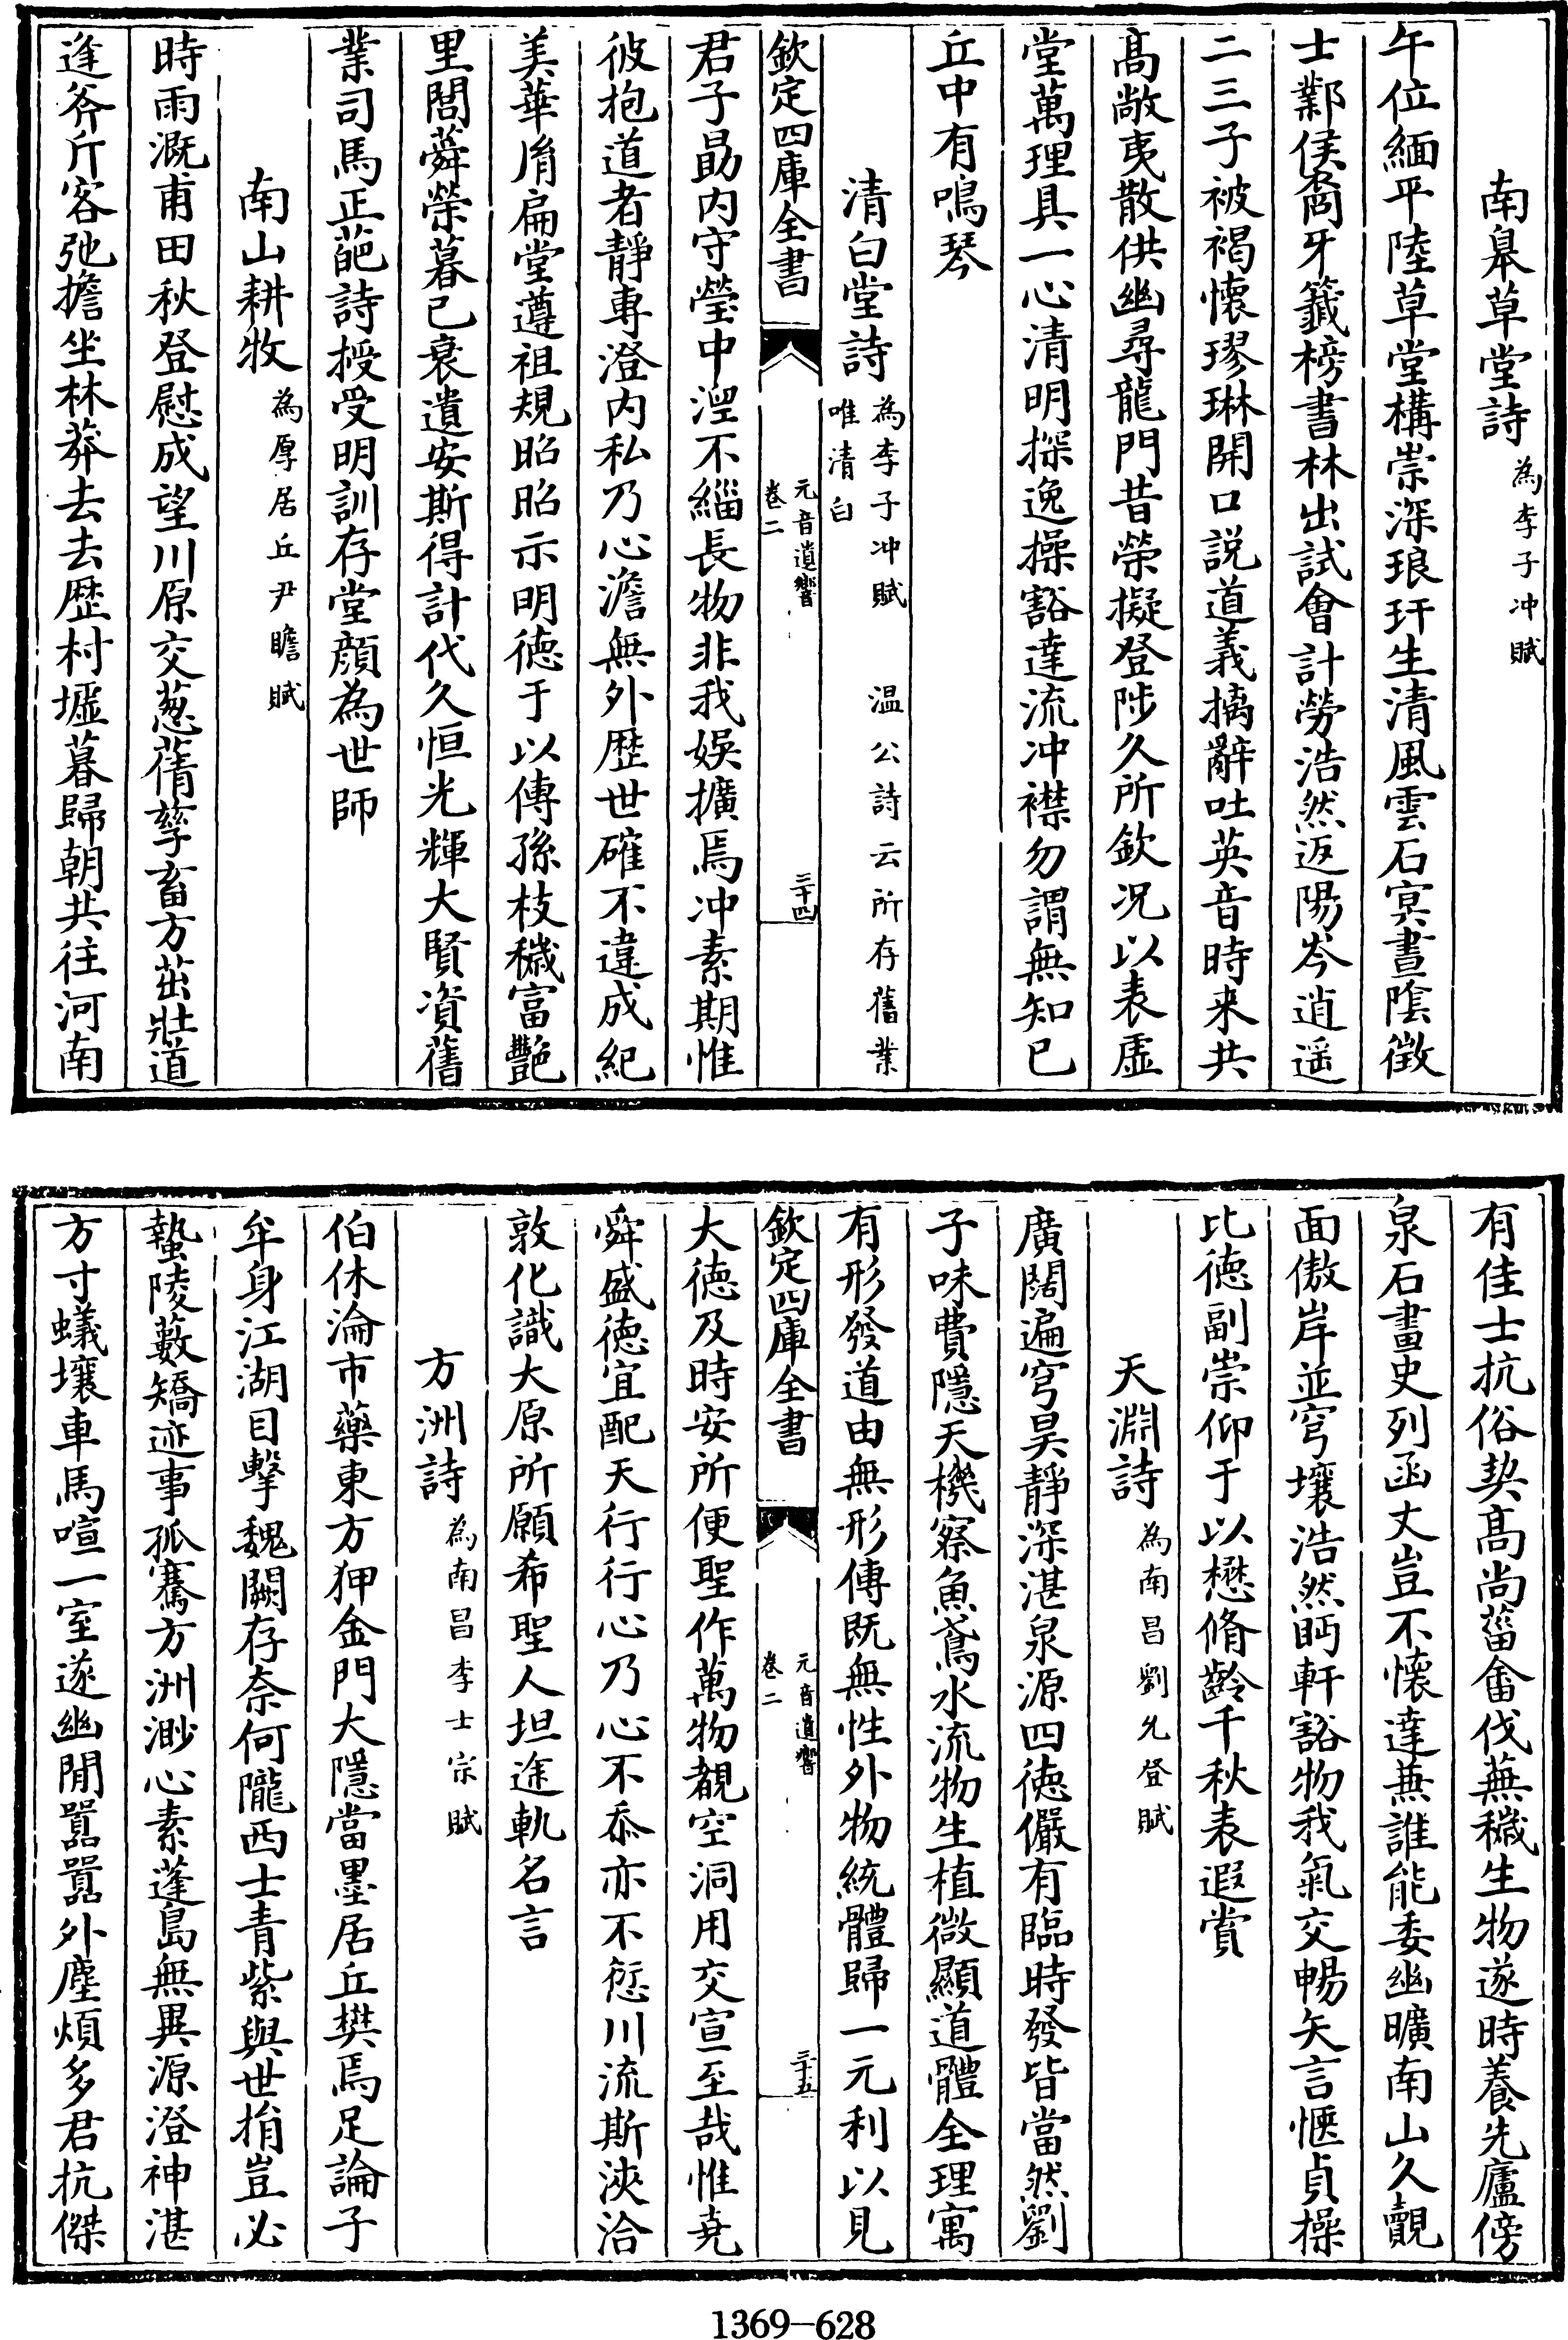 南皋草堂詩為李子冲賦
午位緬平陸草堂構崇深琅玕生清風雲石㝠晝陰徵
士鄴侯裔牙籤榜書林出試會計勞浩然返陽岑逍遥
二三子被褐懷璆琳開口説道義摛辭吐英音時来共
髙敞夷散供幽尋龍門昔榮擬登陟久所欽况以表虛
堂萬理具一心清明探逸操豁達流冲襟勿謂無知已
丘中有鳴琴
清白堂詩為李子冲賦 温公詩云所存舊業
唯清白
欽定四庫全書
元音遺響
卷二
三十四
君子勗内守瑩中湼不緇長物非我娯擴焉冲素期惟
彼抱道者靜專澄内私乃心澹無外歴世確不違成紀
美華胄扁堂遵祖規昭昭示明徳于以傳孫枝穢富艶
里閭蕣榮暮已衰遺安斯得計代久恒光輝大賢資舊
業司馬正葩詩授受明訓存堂顔為世師
南山耕牧為厚居丘尹瞻賦
時雨溉甫田秋登慰成望川原交葱蒨孳畜方茁壯道
逢斧斤客弛擔坐林莽去去歴村墟暮歸朝共往河南
有佳士抗俗契髙尚菑畬伐蕪穢生物遂時養先廬傍
泉石畫史列函丈豈不懷達蕪誰能委幽曠南山久覿
面傲岸並穹壤浩然眄軒豁物我氣交暢矢言愜貞操
比徳副崇仰于以懋脩齡千秋表遐賞
天淵詩為南昌劉允登賦
廣闊遍穹昊靜深湛泉源四徳儼有臨時發皆當然劉
子味費隱天機察魚鳶水流物生植微顯道體全理寓
有形發道由無形傳既無性外物統體歸一元利以見
欽定四庫全書
元音遺響
卷二
三十五
大徳及時安所便聖作萬物覩空洞用交宣至哉惟堯
舜盛徳宜配天行行心乃心不忝亦不愆川流斯浹洽
敦化識大原所願希聖人坦途軌名言
方洲詩為南昌李士宗賦
伯休淪市藥東方狎金門大隱當墨居丘樊焉足論子
牟身江湖目擊魏闕存奈何隴西士青紫與世捐豈必
蟄陵藪矯迹事孤騫方洲渺心素蓬島無異源澄神湛
方寸蟻壤車馬喧一室遂幽閒囂囂外塵煩多君抗傑
1369—628